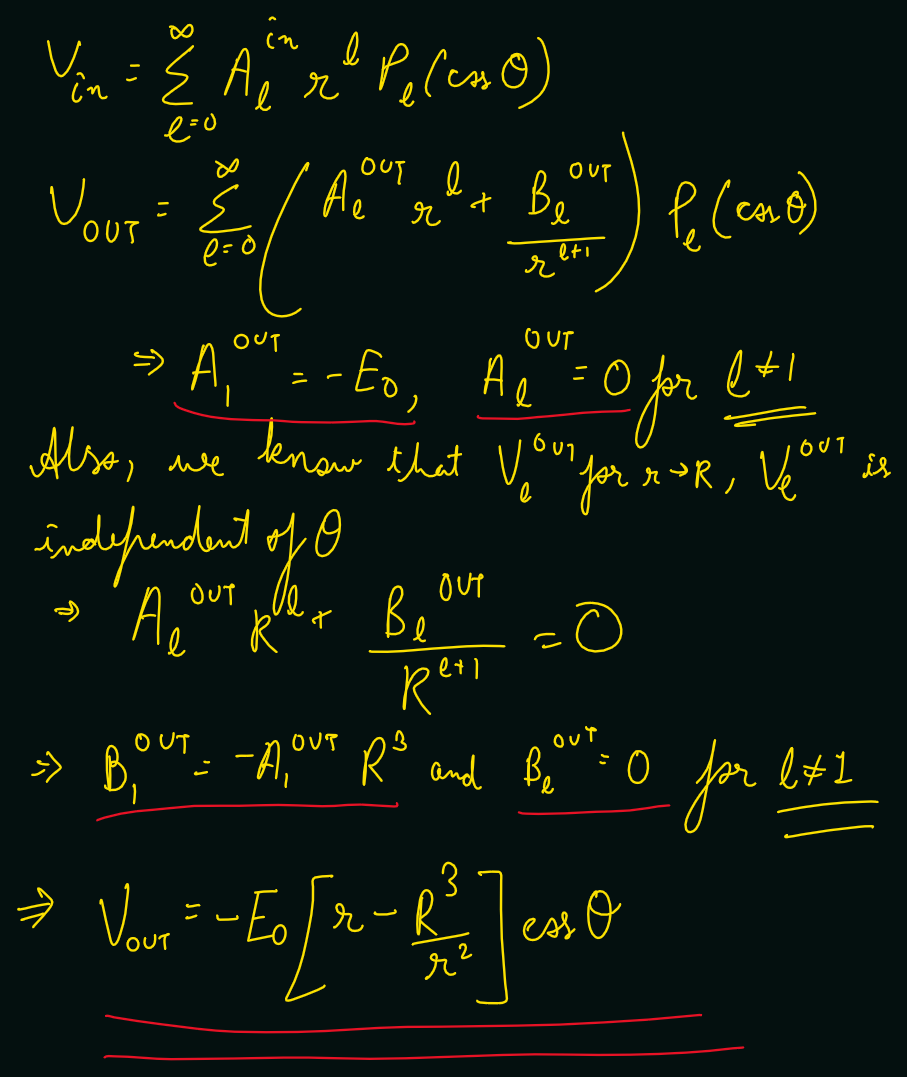 V_in = Σ_{ℓ=0}^{∞} A_ℓ^{in} r^ℓ P_ℓ(cos θ)
V_OUT = Σ_{ℓ=0}^{∞} ( A_ℓ^{OUT} r^ℓ + B_ℓ^{OUT} / r^{ℓ+1} ) P_ℓ(cos θ)
⇒ A_1^{OUT} = -E_0, A_ℓ^{OUT} = 0 for ℓ ≠ 1
Also, we know that V_ℓ^{OUT} for r → R, V_ℓ^{OUT} is
independent of θ
⇒ A_ℓ^{OUT} R^ℓ + B_ℓ^{OUT} / R^{ℓ+1} = 0
⇒ B_1^{OUT} = -A_1^{OUT} R^3 and B_ℓ^{OUT} = 0 for ℓ ≠ 1
⇒ V_OUT = -E_0 [ r - R^3 / r^2 ] cos θ